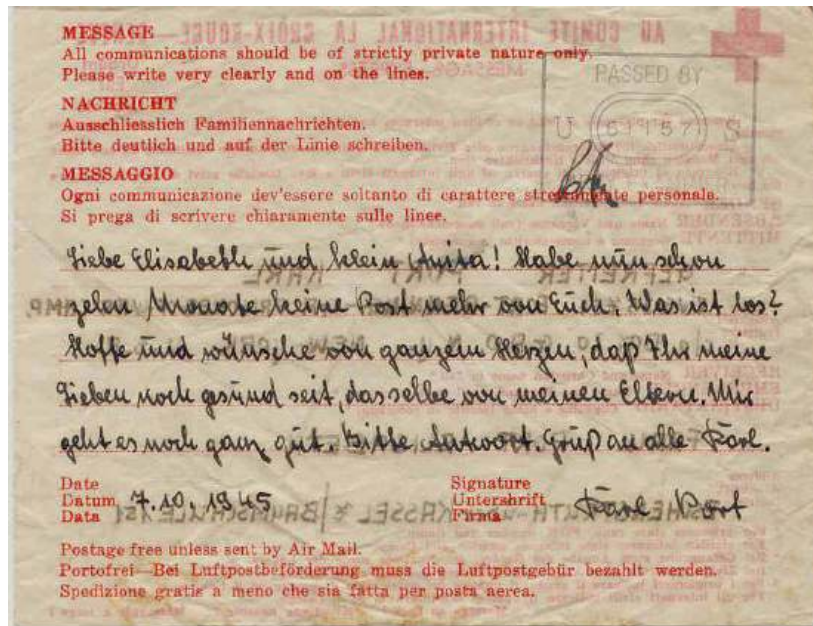 MESSAGE
All communications should be of strictly private nature only.
Please write very clearly and on the lines.
NACHRICHT
Ausschliesslich Familiennachrichten.
Bitte deutlich und auf der Linie schreiben.
MESSAGGIO
Ogni communicazione dev'essere soltanto di carattere personale.
Si prega di scrivere chiaramente sulle linee.
PASSED BY
U 61157 S
Liebe Elisabeth und klein Anita! Habe nun schon
zehn Monate keine Post mehr von Euch. Was ist los?
Hoffe und wünsche von ganzem Herzen, daß Ihr meine
Lieben noch gesund seit, dasselbe von meinen Eltern. Mir
geht es noch ganz gut. Bitte Antwort. Gruß an alle Karl.
Date
Datum 7.10.1945
Data
Signature
Untershrift Karl Port
Firma
Postage free unless sent by Air Mail.
Portofrei—Bei Luftpostbeförderung muss die Luftpostgebür bezahlt werden.
Spedizione gratis a meno che sia fatta per posta aerea.